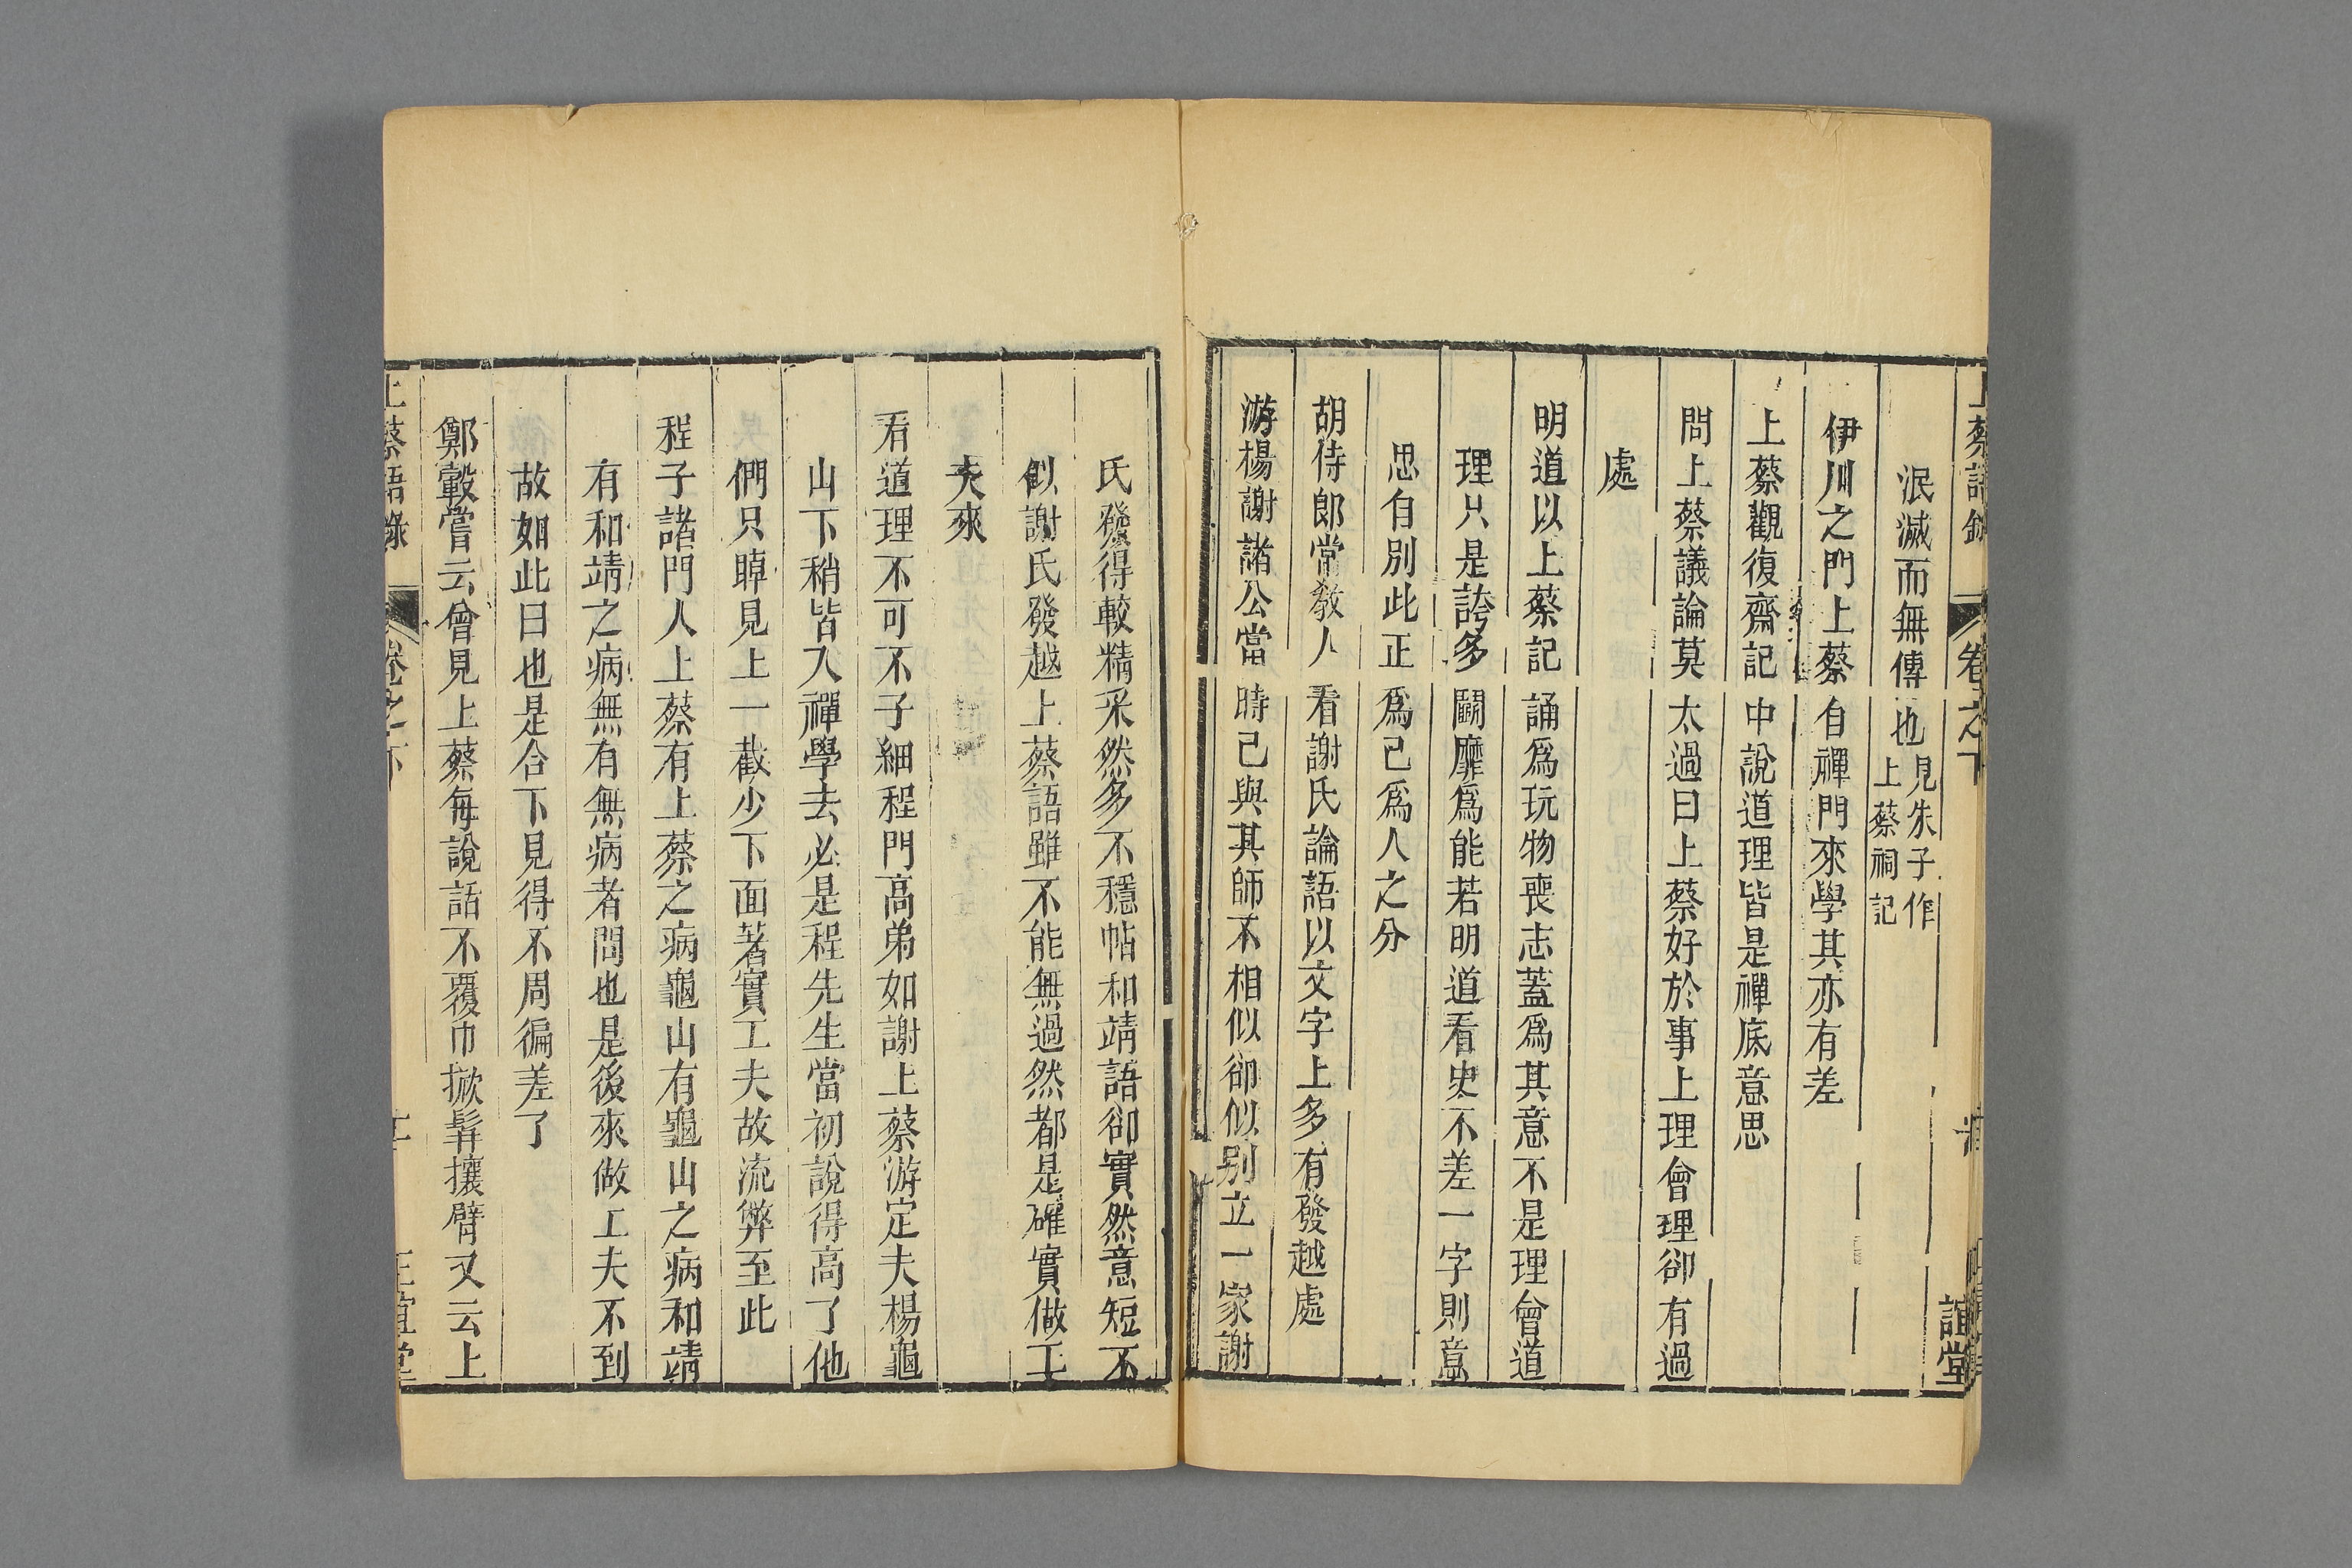 上蔡語錄 卷之下
誼堂
泯滅而無傳也見朱子作上蔡祠記
伊川之門上蔡自禪門來學其亦有差
上蔡觀復齋記中說道理皆是禪底意思
問上蔡議論莫太過曰上蔡好於事上理會理卻有過
處
明道以上蔡記誦爲玩物喪志蓋爲其意不是理會道
理只是誇多鬭靡爲能若明道看史不差一字則意
思自別此正爲己爲人之分
胡侍郎常敎人看謝氏論語以文字上多有發越處
游楊謝諸公當時已與其師不相似卻似別立一家謝
氏發得較精采然多不穩帖和靖語卻實然意短不
似謝氏發越上蔡語雖不能無過然都是確實做工
夫來
看道理不可不子細程門高弟如謝上蔡游定夫楊龜
山下稍皆入禪學去必是程先生當初說得高了他
們只䁔見上一截少下面著實工夫故流弊至此
程子諸門人上蔡有上蔡之病龜山有龜山之病和靖
有和靖之病無有無病者問也是後來做工夫不到
故如此曰也是合下見得不周徧差了
鄭轂嘗云曾見上蔡每說話不覆巾掀髯攘臂又云上
上蔡語錄 卷之下 正誼堂